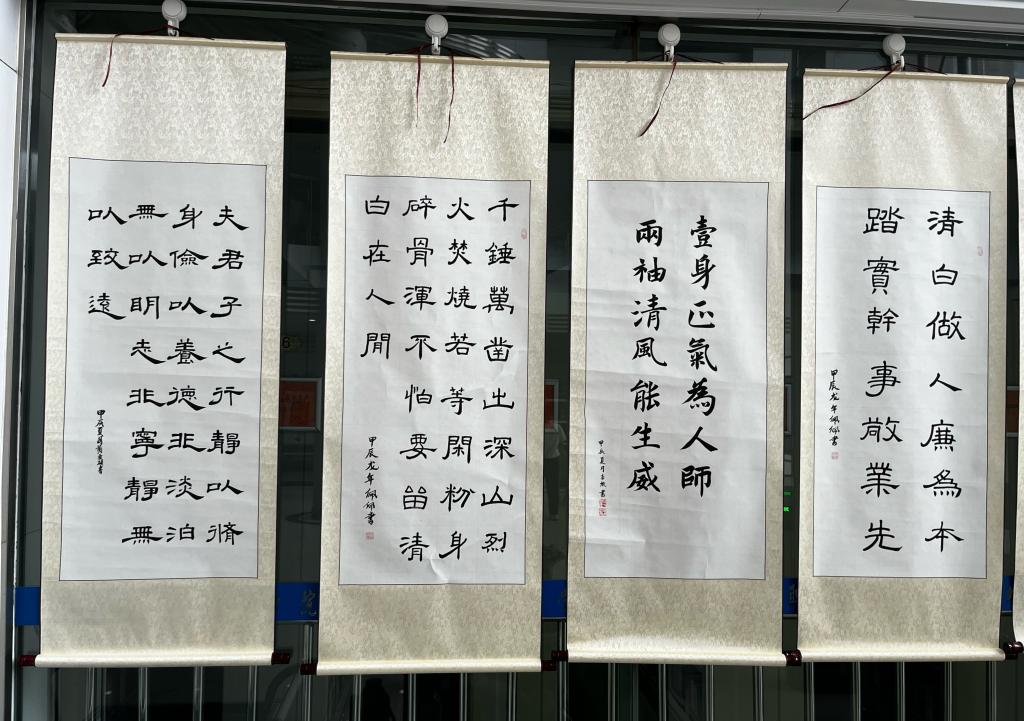 清白做人廉為本
踏實幹事敬業先
甲辰龙年書
壹身正氣為人師
兩袖清風能生威
甲辰夏月書
千錘萬凿出深山烈
火焚燒若等閑粉身
碎骨渾不怕要留清
白在人間
甲辰龙年書
夫君子之行靜以脩
身儉以養德非淡泊
無以明志非寧靜無
以致遠
甲辰夏月書